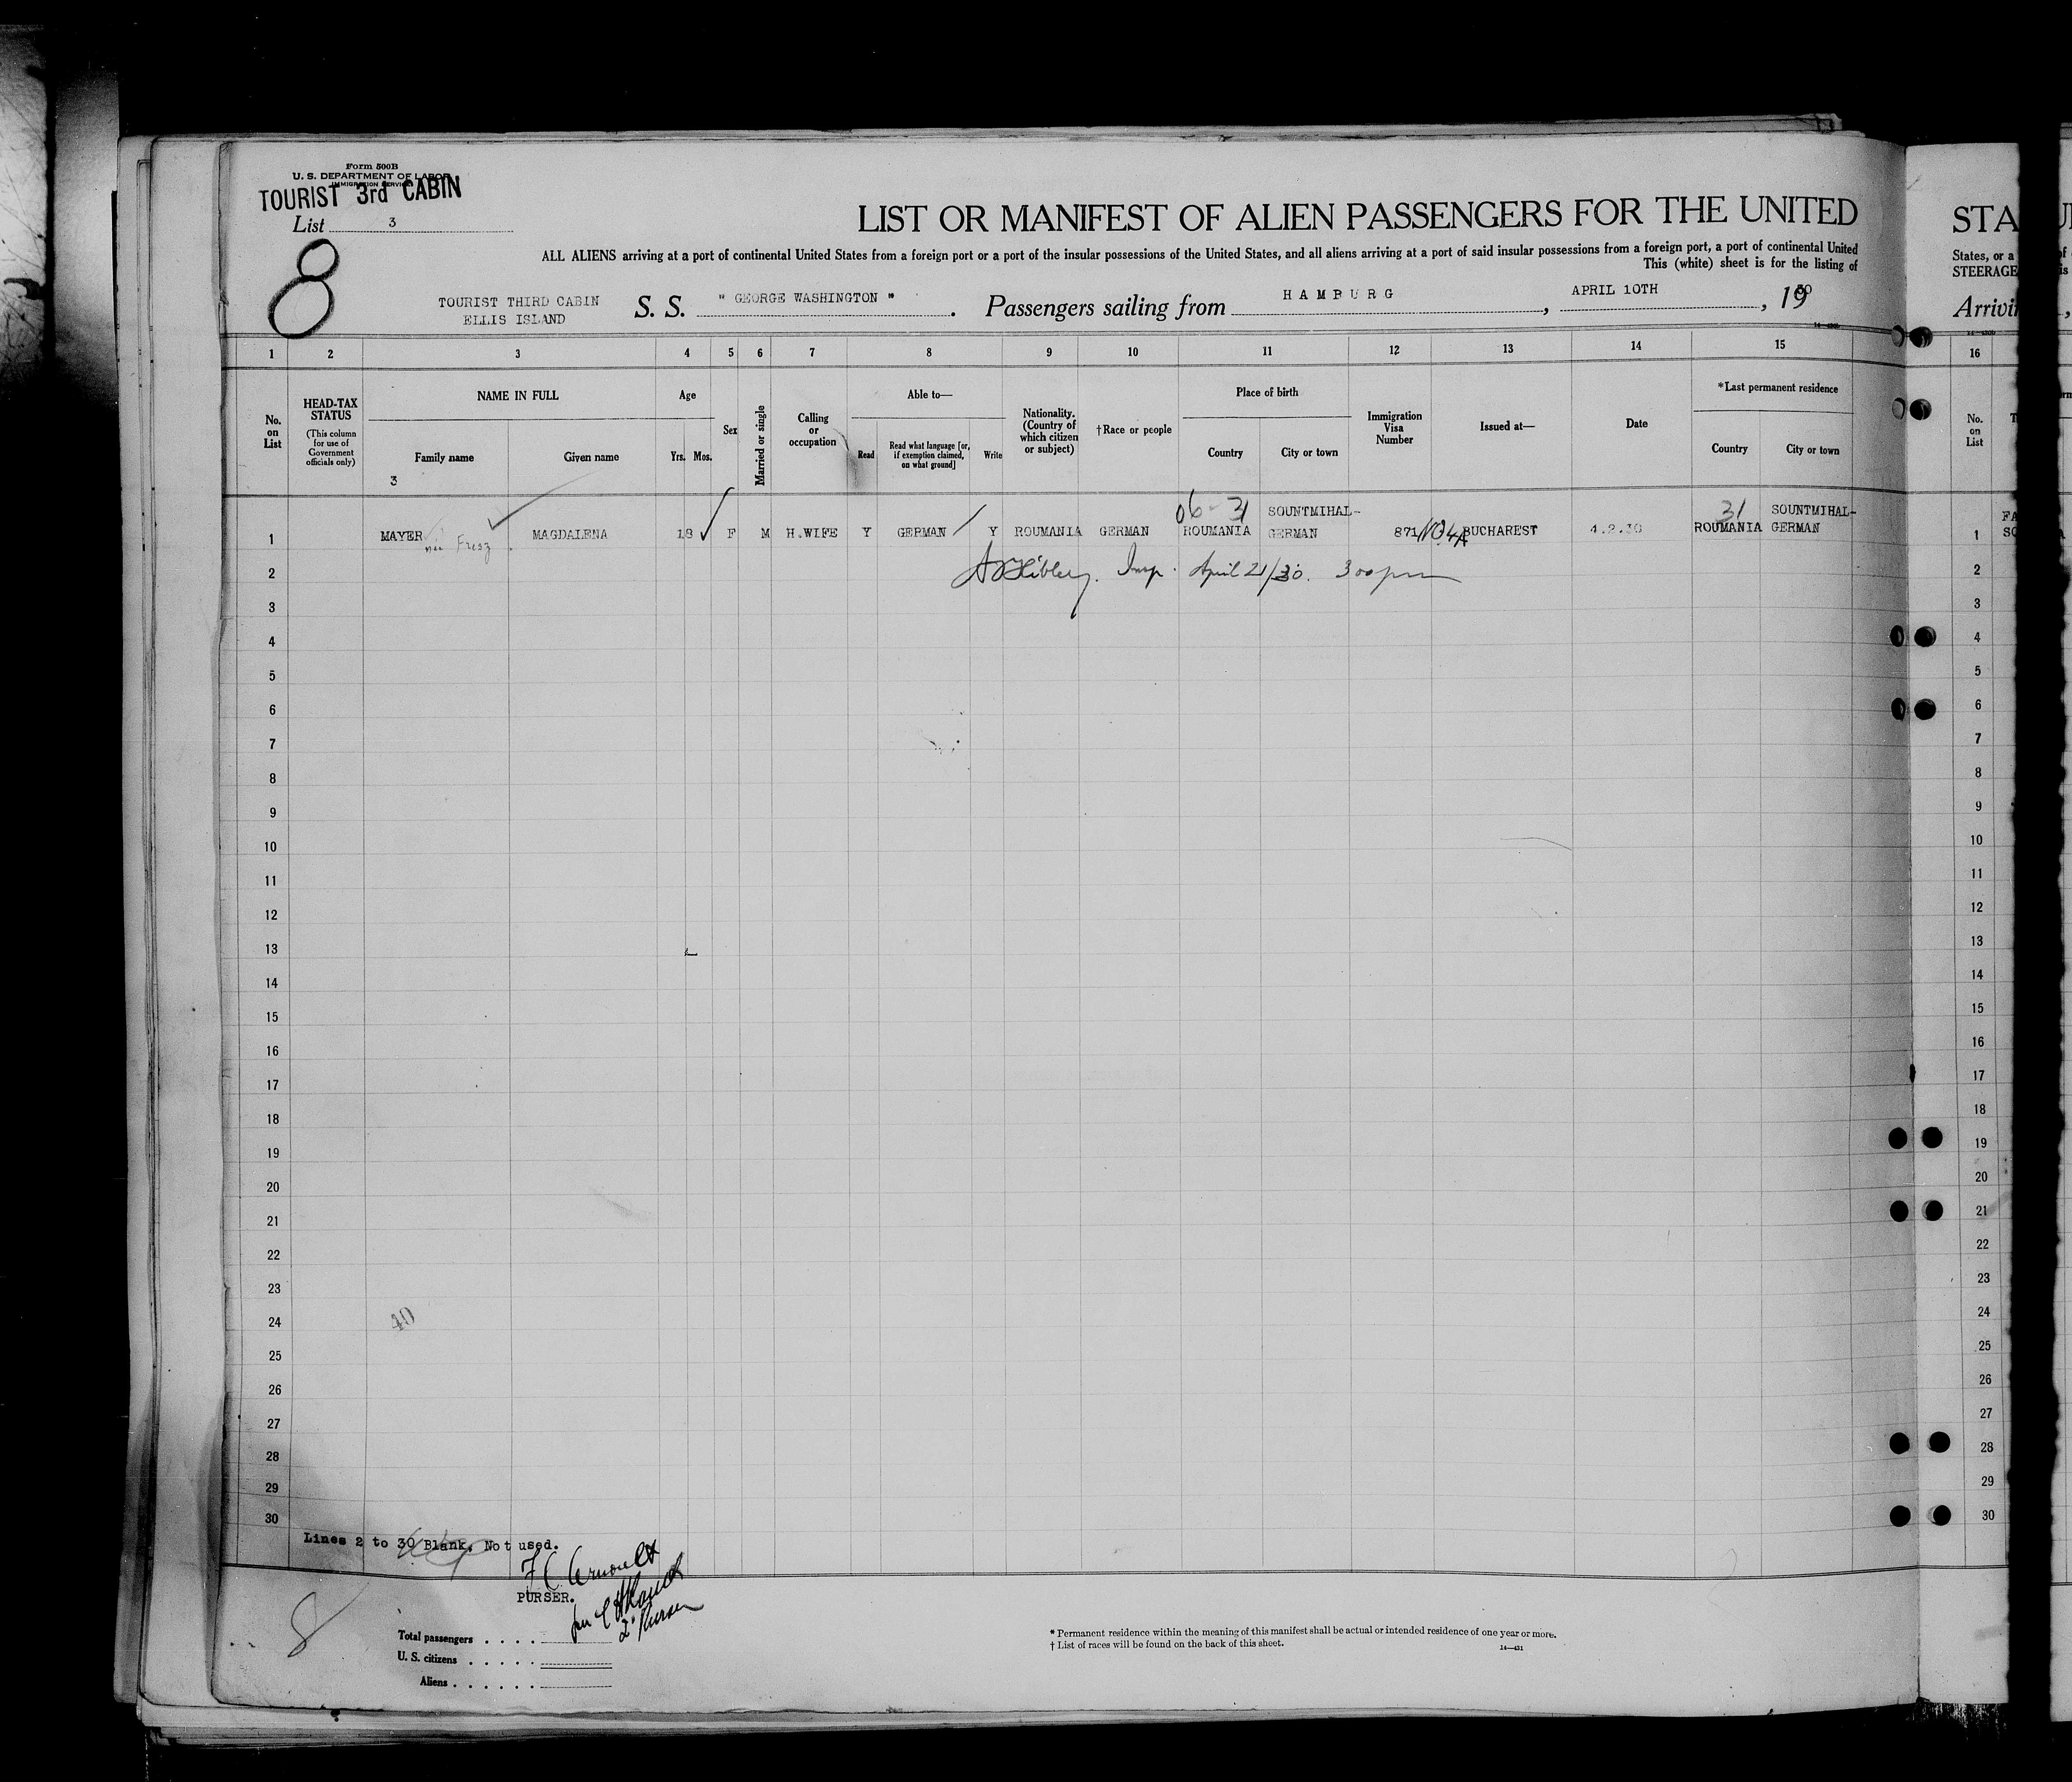 Form 500B
U. S. DEPARTMENT OF LABOR
IMMIGRATION SERVICE
TOURIST 3rd CABIN
List 3
8
LIST OR MANIFEST OF ALIEN PASSENGERS FOR THE UNITED
ALL ALIENS arriving at a port of continental United States from a foreign port or a port of the insular possessions of the United States, and all aliens arriving at a port of said insular possessions from a foreign port, a port of continental United
This (white) sheet is for the listing of
TOURIST THIRD CABIN
ELLIS ISLAND
S. S. " GEORGE WASHINGTON " . Passengers sailing from HAMBURG , APRIL 10TH , 1930
1 2 3 4 5 6 7 8 9 10 11 12 13 14 15
No. on List
HEAD-TAX STATUS
(This column for use of Government officials only)
NAME IN FULL
Family name
Given name
3
Age
Yrs. Mos.
Sex
Married or single
Calling or occupation
Able to—
Read
Read what language [or, if exemption claimed, on what ground]
Write
Nationality. (Country of which citizen or subject)
†Race or people
Place of birth
Country
City or town
Immigration Visa Number
Issued at—
Date
*Last permanent residence
Country
City or town
06-31 SOUNTMIHAL- 31 SOUNTMIHAL-
1 MAYER née MAGDALENA 18 F M H.WIFE Y GERMAN Y ROUMANIA GERMAN ROUMANIA GERMAN 871 BUCHAREST ROUMANIA GERMAN
2 Insp. April 21/30. 300 pm
3
4
5
6
7
8
9
10
11
12
13
14
15
16
17
18
19
20
21
22
23
24 40
25
26
27
28
29
30
Lines 2 to 30 Blank. Not used.
PURSER.
8
Total passengers
U. S. citizens
Aliens
* Permanent residence within the meaning of this manifest shall be actual or intended residence of one year or more.
† List of races will be found on the back of this sheet.
14—431
STA
States, or a
STEERAGE
Arrivin
16
No. on List
1
2
3
4
5
6
7
8
9
10
11
12
13
14
15
16
17
18
19
20
21
22
23
24
25
26
27
28
29
30